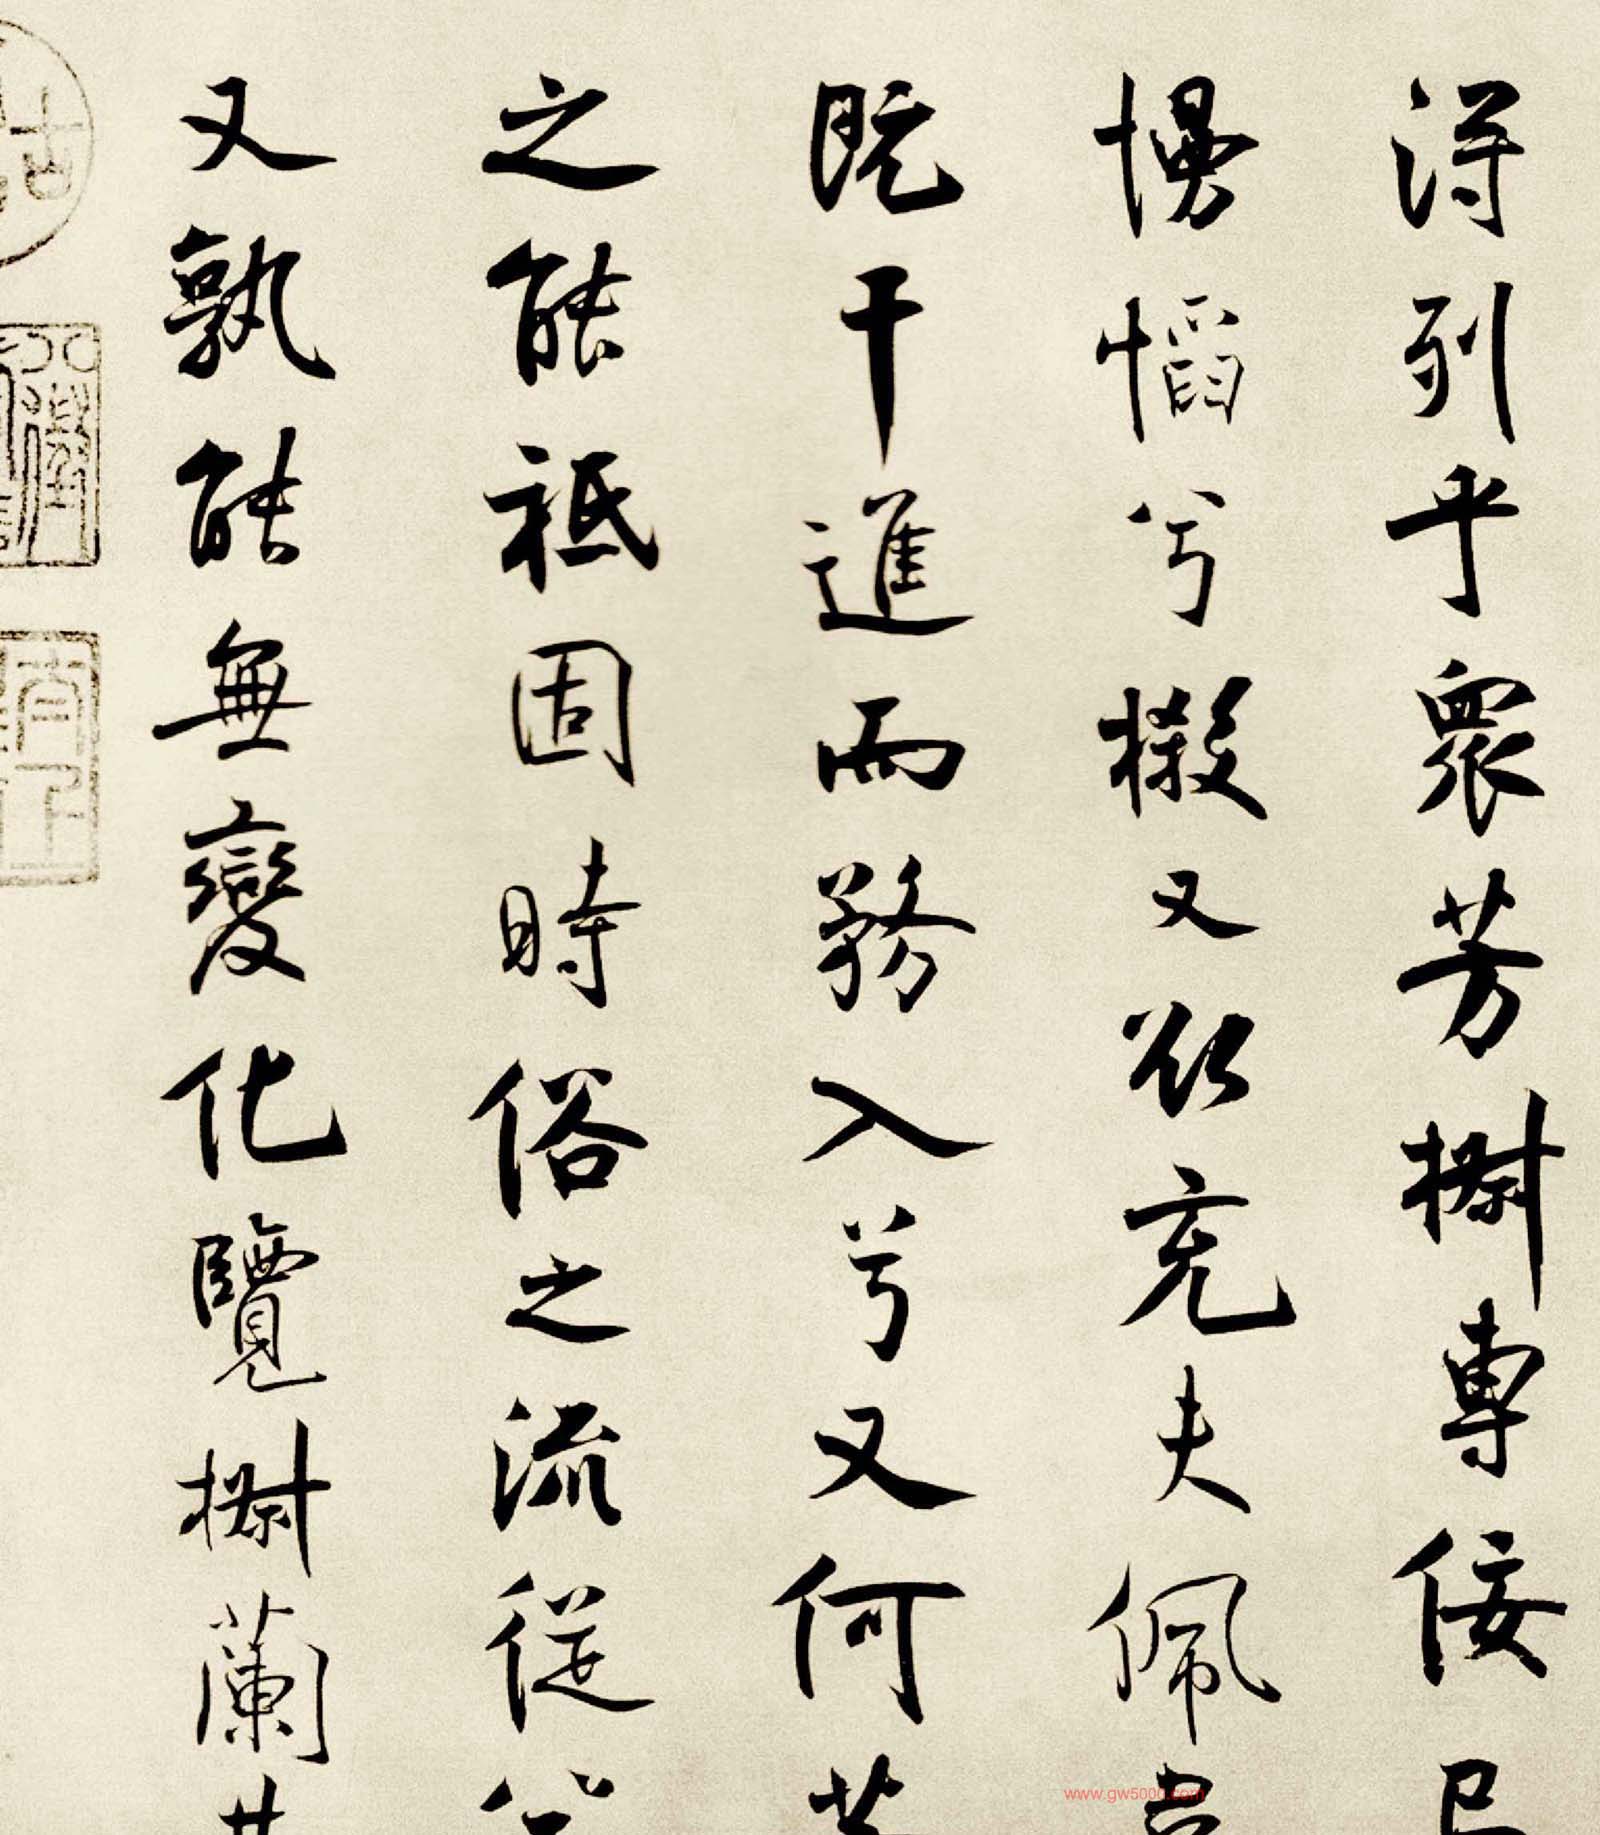 得列乎眾芳樹專佞
慢慆兮樧又欲充夫佩
既干進而務入兮又何芳
之能祗固時俗之流從兮
又孰能無變化覽樹蘭其
www.gw5000.com